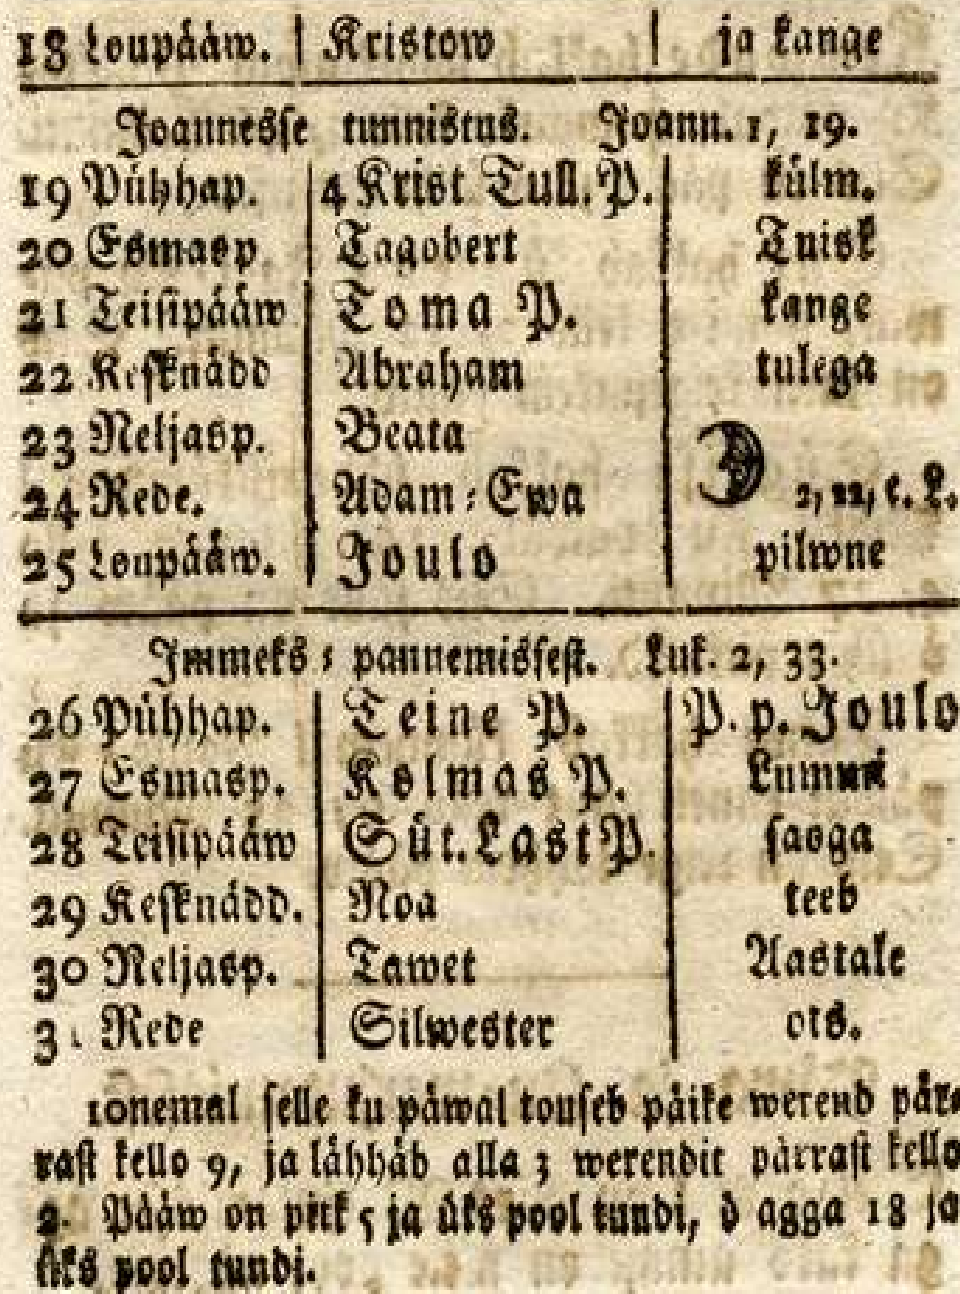 18 Loupååw. Kristow ja kange
Joannesse tunnistus. Joann. 1, 19.
19 Pühhap. 4 Krist Tull. P. külm.
20 Esmasp Tagobert Tuisk
21 Teisipååw Toma P. kange
22 Kesknådd Abraham tulega
23 Neljasp. Beata
24 Rede. Adam : Ewa 2, 22, e. L.
25 Loupååw. Joulo pilwne
Immeks : pannemissest. Luk. 2, 33.
26 Pühhap. Teine P. P. p. Joulo
27 Esmasp. Kolmas P. Lummi
28 Teisipååw Süt. Last P. saoga
29 Kesknådd. Noa teeb
30 Neljasp. Tawet Aastale
31 Rede Silwester ots.
10nemal selle ku påwal touseb påike werend pår-
rast kello 9, ja låhhåb alla 3 werendit pårrast kello
2. Pååw on pitk 5 ja üks pool tundi, ö agga 18 ja
üks pool tundi.